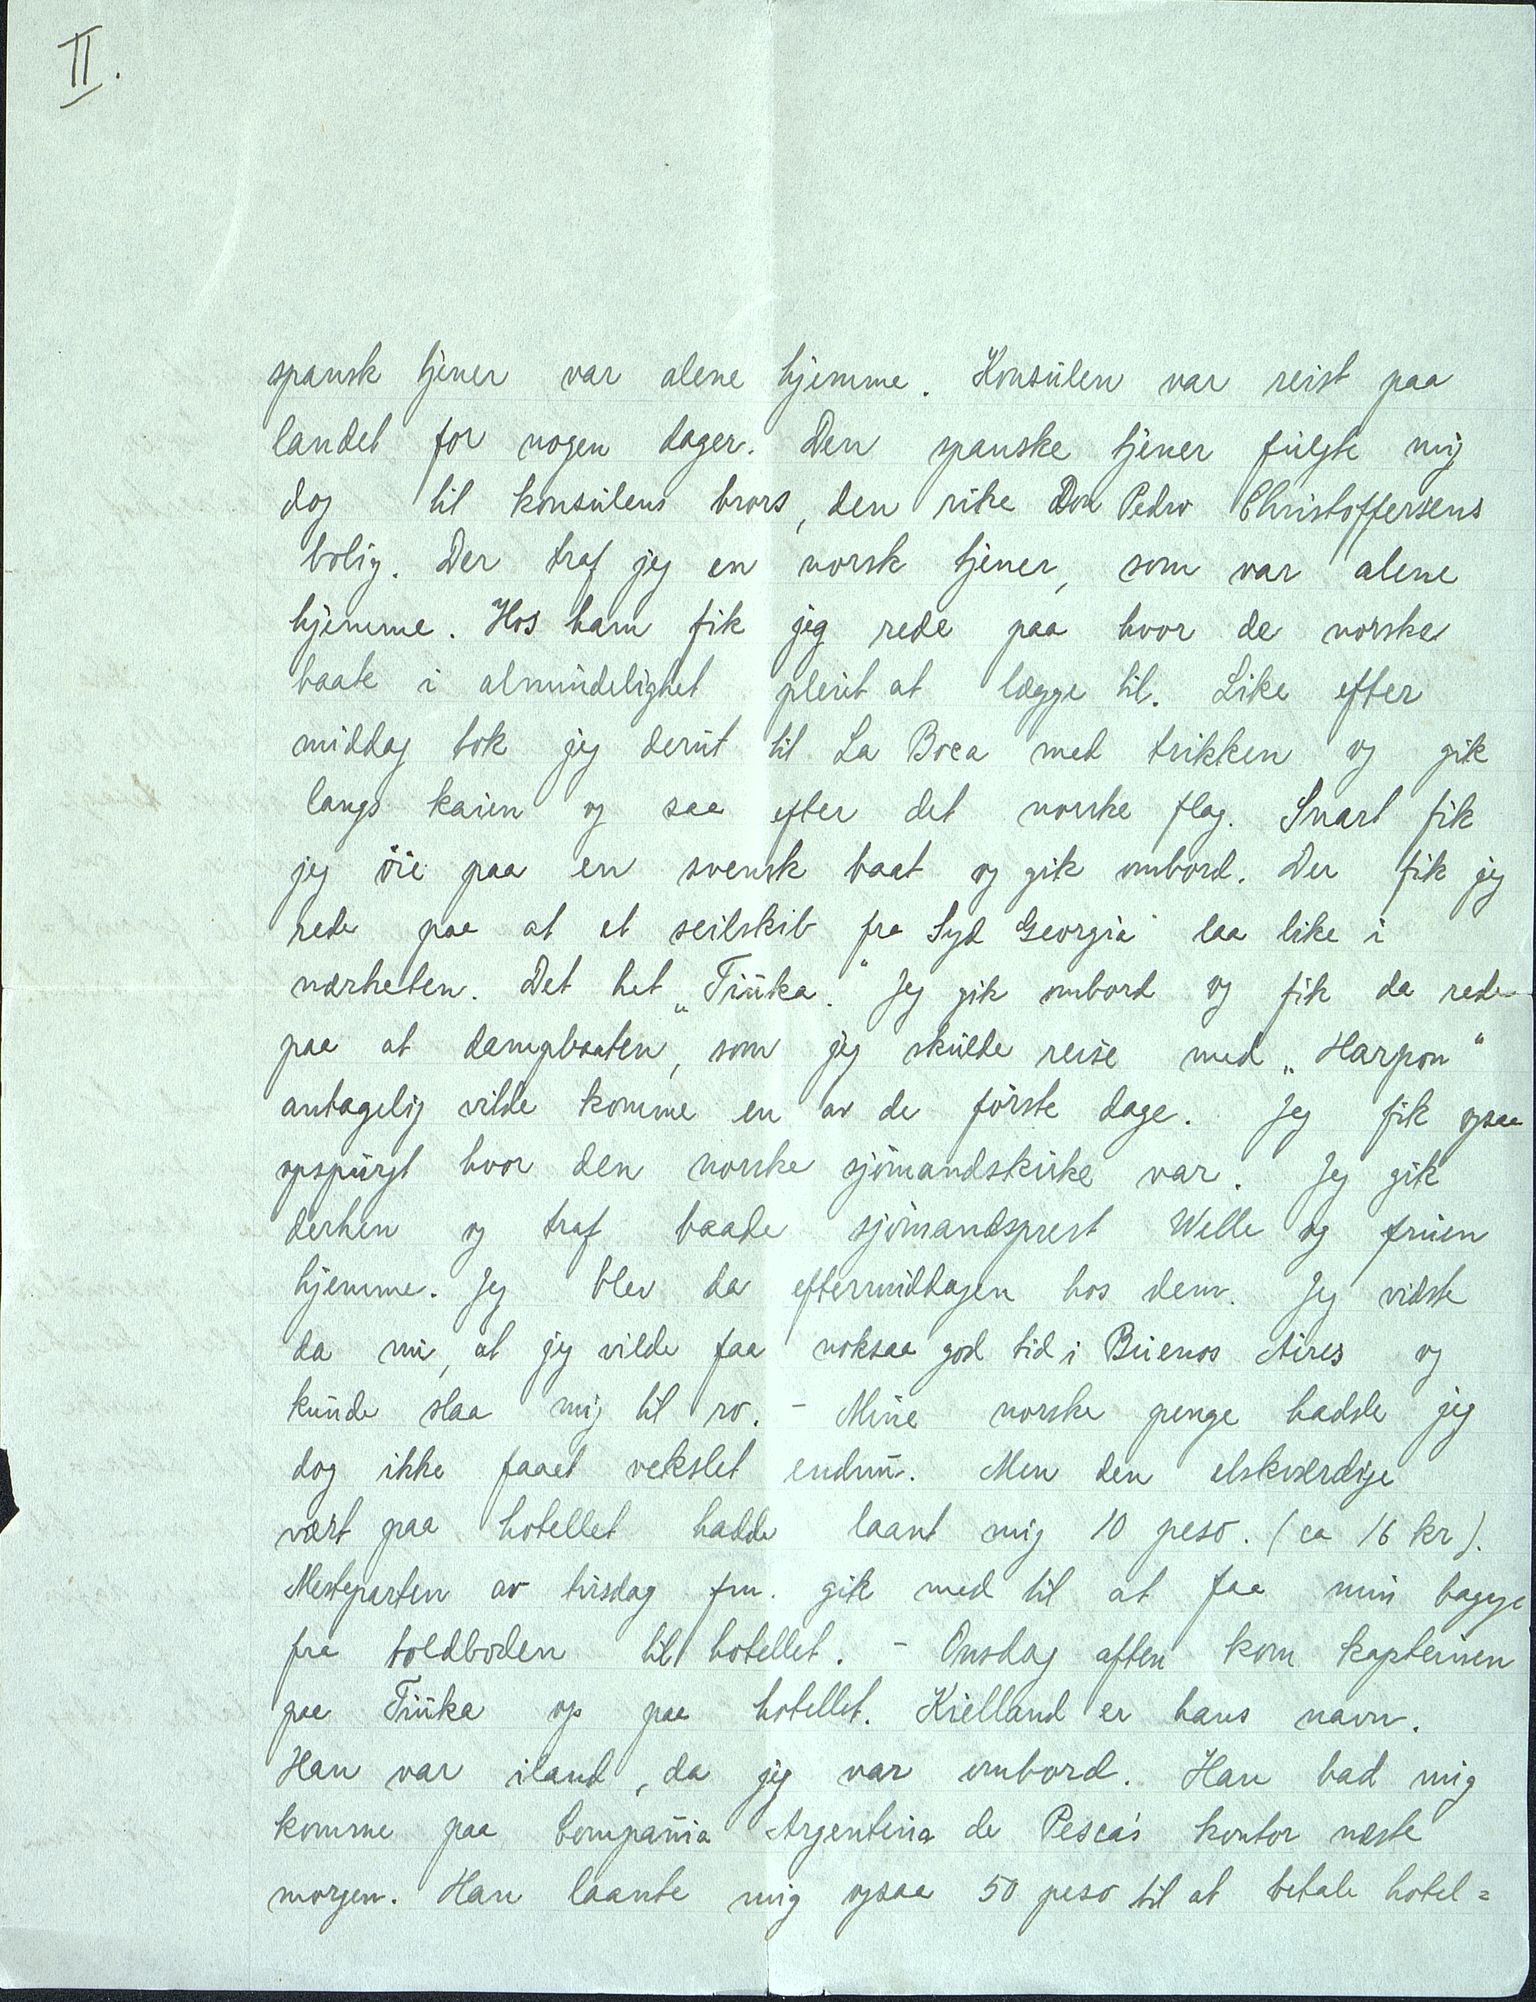 II.
spansk tjener var alene hjemme. Konsulen var reist paa
landet for nogen dager. Den spanske tjener fulgte mig
dog til konsulens brors, den rike Don Pedro Christoffersens
bolig. Der traf jeg en norsk tjener, som var alene
hjemme. Hos ham fik jeg rede paa hvor de norske
baate i almindelighet pleiet at lægge til. Like efter
middag tok jeg derut til La Boca med trikken og gik
langs kaien og saa efter det norske flag. Snart fik
jeg öie paa en svensk baat og gik ombord. Der fik jeg
rede paa at et seilskib fra Syd Georgia laa like i
nærheten. Det het „Tijuka." Jeg gik ombord og fik da rede
paa at dampbaaten, som jeg skulde reise med „Harpon"
antagelig vilde komme en av de förste dage. Jeg fik ogsaa
opspurgt hvor den norske sjömandskirke var. Jeg gik
derhen og traf baade sjömandsprest Wille og fruen
hjemme. Jeg blev da eftermiddagen hos dem. Jeg vidste
da nu, at jeg vilde faa noksaa god tid i Buenos Aires og
kunde slaa mig til ro. - Mine norske penge hadde jeg
dog ikke faaet vekslet endnu. Men den elskværdige
vært paa hotellet hadde laant mig 10 peso. (ca 16 kr).
Mesteparten av tirsdag fm. gik med til at faa min bagage
fra toldboden til hotellet. - Onsdag aften kom kapteinen
paa Tijuka op paa hotellet. Kielland er hans navn.
Han var iland, da jeg var ombord. Han bad mig
komme paa Compañia Argentina de Pesca's kontor næste
morgen. Han laante mig ogsaa 50 peso til at betale hotel=